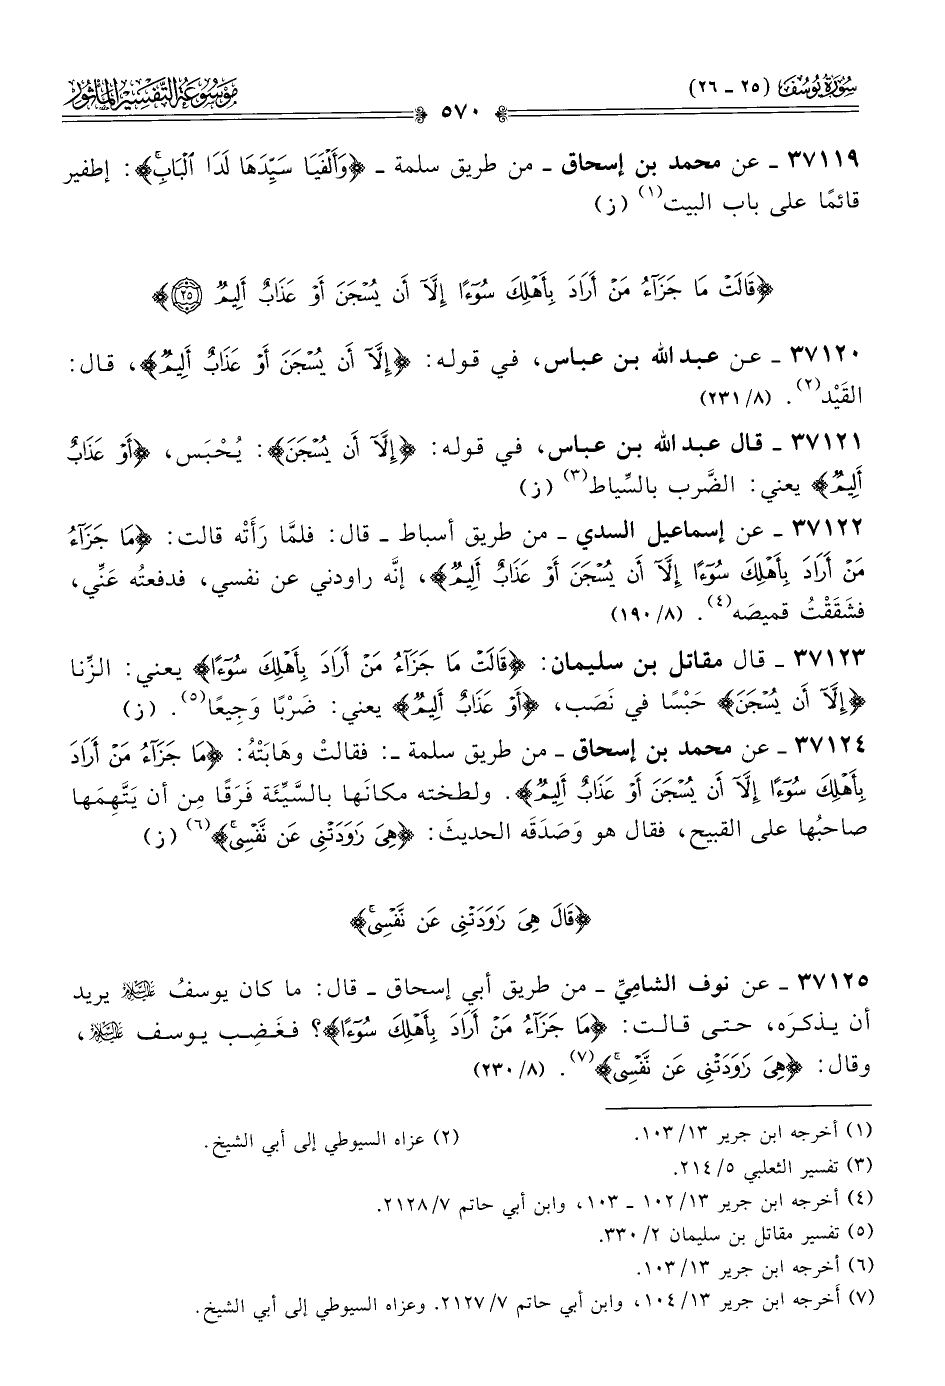 سُورَةُ يُوسُفَ (٢٥ - ٢٦)
٥٧٠
مَوْسُوعَةُ التَّفْسِيرِ المَأْثُورِ
٣٧١١٩ - عن محمد بن إسحاق - من طريق سلمة - ﴿وَأَلْفَيَا سَيِّدَهَا لَدَا ٱلْبَابِۚ﴾: إطفير
قائمًا على باب البيت(١) (ز)
﴿قَالَتْ مَا جَزَآءُ مَنْ أَرَادَ بِأَهْلِكَ سُوٓءًا إِلَّآ أَن يُسْجَنَ أَوْ عَذَابٌ أَلِيمٌ ۝٢٥﴾
٣٧١٢٠ - عن عبد الله بن عباس، في قوله: ﴿إِلَّآ أَن يُسْجَنَ أَوْ عَذَابٌ أَلِيمٌ﴾، قال:
القَيْد(٢). (٨/ ٢٣١)
٣٧١٢١ - قال عبد الله بن عباس، في قوله: ﴿إِلَّآ أَن يُسْجَنَ﴾: يُحْبَس، ﴿أَوْ عَذَابٌ
أَلِيمٌ﴾ يعني: الضَّرب بالسِّياط(٣) (ز)
٣٧١٢٢ - عن إسماعيل السدي - من طريق أسباط - قال: فلمَّا رَأَتْه قالت: ﴿مَا جَزَآءُ
مَنْ أَرَادَ بِأَهْلِكَ سُوٓءًا إِلَّآ أَن يُسْجَنَ أَوْ عَذَابٌ أَلِيمٌ﴾، إنَّه راودني عن نفسي، فدفعتُه عَنِّي،
فشَقَقْتُ قميصَه(٤). (٨/ ١٩٠)
٣٧١٢٣ - قال مقاتل بن سليمان: ﴿قَالَتْ مَا جَزَآءُ مَنْ أَرَادَ بِأَهْلِكَ سُوٓءًا﴾ يعني: الزِّنا
﴿إِلَّآ أَن يُسْجَنَ﴾ حَبْسًا في نَصَب، ﴿أَوْ عَذَابٌ أَلِيمٌ﴾ يعني: ضَرْبًا وَجِيعًا(٥). (ز)
٣٧١٢٤ - عن محمد بن إسحاق - من طريق سلمة -: فقالتْ وهَابَتْهُ: ﴿مَا جَزَآءُ مَنْ أَرَادَ
بِأَهْلِكَ سُوٓءًا إِلَّآ أَن يُسْجَنَ أَوْ عَذَابٌ أَلِيمٌ﴾. ولطخته مكانَها بالسَّيِّئَة فَرَقًا مِن أن يَتَّهِمَها
صاحبُها على القبيح، فقال هو وَصَدَقَه الحديثَ: ﴿هِىَ رَٰوَدَتْنِى عَن نَّفْسِىۚ﴾(٦) (ز)
﴿قَالَ هِىَ رَٰوَدَتْنِى عَن نَّفْسِىۚ﴾
٣٧١٢٥ - عن نوف الشامِيِّ - من طريق أبي إسحاق - قال: ما كان يوسفُ عَلَيْهِ السَّلَام يريد
أن يذكرَه، حتى قالت: ﴿مَا جَزَآءُ مَنْ أَرَادَ بِأَهْلِكَ سُوٓءًا﴾؟ فغَضِب يوسف عَلَيْهِ السَّلَام،
وقال: ﴿هِىَ رَٰوَدَتْنِى عَن نَّفْسِىۚ﴾(٧). (٨/ ٢٣٠)
(١) أخرجه ابن جرير ١٣/ ١٠٣. (٢) عزاه السيوطي إلى أبي الشيخ.
(٣) تفسير الثعلبي ٥/ ٢١٤.
(٤) أخرجه ابن جرير ١٣/ ١٠٢ - ١٠٣، وابن أبي حاتم ٧/ ٢١٢٨.
(٥) تفسير مقاتل بن سليمان ٢/ ٣٣٠.
(٦) أخرجه ابن جرير ١٣/ ١٠٣.
(٧) أخرجه ابن جرير ١٣/ ١٠٤، وابن أبي حاتم ٧/ ٢١٢٧. وعزاه السيوطي إلى أبي الشيخ.